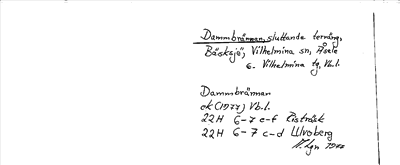 Dammbrännan, sluttande terräng,
Bäsksjö, Vilhelmina sn, Åsele
6. Vilhelmina tg, Vb.l.
Dammbrännan
ek (1977) Vb.l.
22H 6-7 e-f Risträsk
22H 6-7 c-d Ulvoberg